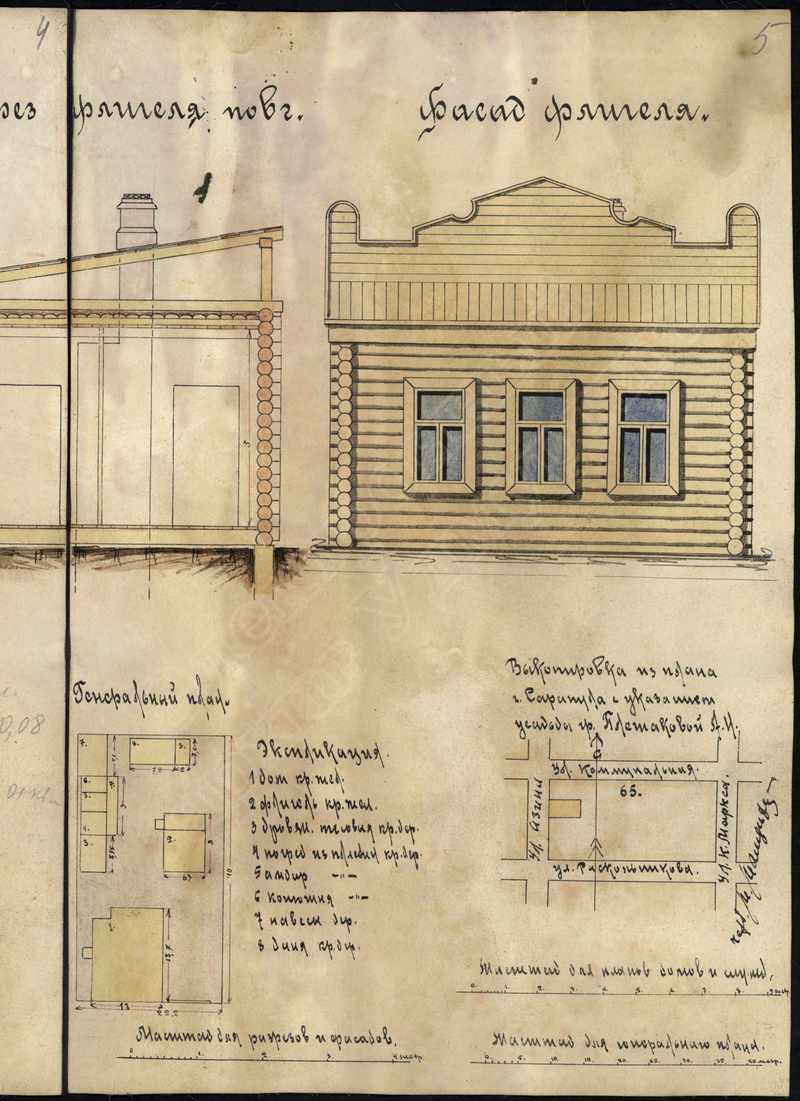 4
5
рез флигеля по вг.
Фасад флигеля.
3
0,08
Генеральный план.
Экспликация.
1 дом кр. жел.
2 флигель кр. жел.
3 дровян. тесовая кр. дер.
4 погреб из плетня кр. дер.
5 амбар -"-
6 конюшня -"-
7 навесы дер.
8 баня кр. дер.
13
22,2
13,7
Выкопировка из плана
г. Сарапула с указанием
усадьбы гр. Плешаковой А.И.
Ул. Коммунальная.
65.
Ул. Азина
Ул. К. Маркса.
ул. Раскольникова.
Масштаб для разрезов и фасадов.
Масштаб для планов домов и служб.
Масштаб для генерального плана.